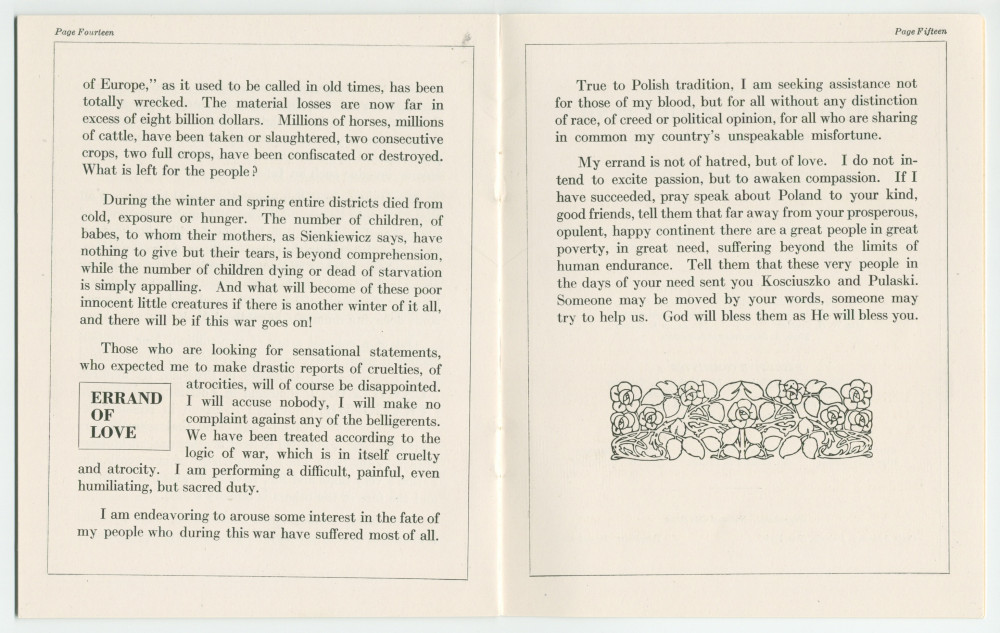 Page Fourteen
of Europe," as it used to be called in old times, has been
totally wrecked. The material losses are now far in
excess of eight billion dollars. Millions of horses, millions
of cattle, have been taken or slaughtered, two consecutive
crops, two full crops, have been confiscated or destroyed.
What is left for the people?
During the winter and spring entire districts died from
cold, exposure or hunger. The number of children, of
babes, to whom their mothers, as Sienkiewicz says, have
nothing to give but their tears, is beyond comprehension,
while the number of children dying or dead of starvation
is simply appalling. And what will become of these poor
innocent little creatures if there is another winter of it all,
and there will be if this war goes on!
Those who are looking for sensational statements,
who expected me to make drastic reports of cruelties, of
ERRAND
OF
LOVE
atrocities, will of course be disappointed.
I will accuse nobody, I will make no
complaint against any of the belligerents.
We have been treated according to the
logic of war, which is in itself cruelty
and atrocity. I am performing a difficult, painful, even
humiliating, but sacred duty.
I am endeavoring to arouse some interest in the fate of
my people who during this war have suffered most of all.
Page Fifteen
True to Polish tradition, I am seeking assistance not
for those of my blood, but for all without any distinction
of race, of creed or political opinion, for all who are sharing
in common my country's unspeakable misfortune.
My errand is not of hatred, but of love. I do not in-
tend to excite passion, but to awaken compassion. If I
have succeeded, pray speak about Poland to your kind,
good friends, tell them that far away from your prosperous,
opulent, happy continent there are a great people in great
poverty, in great need, suffering beyond the limits of
human endurance. Tell them that these very people in
the days of your need sent you Kosciuszko and Pulaski.
Someone may be moved by your words, someone may
try to help us. God will bless them as He will bless you.